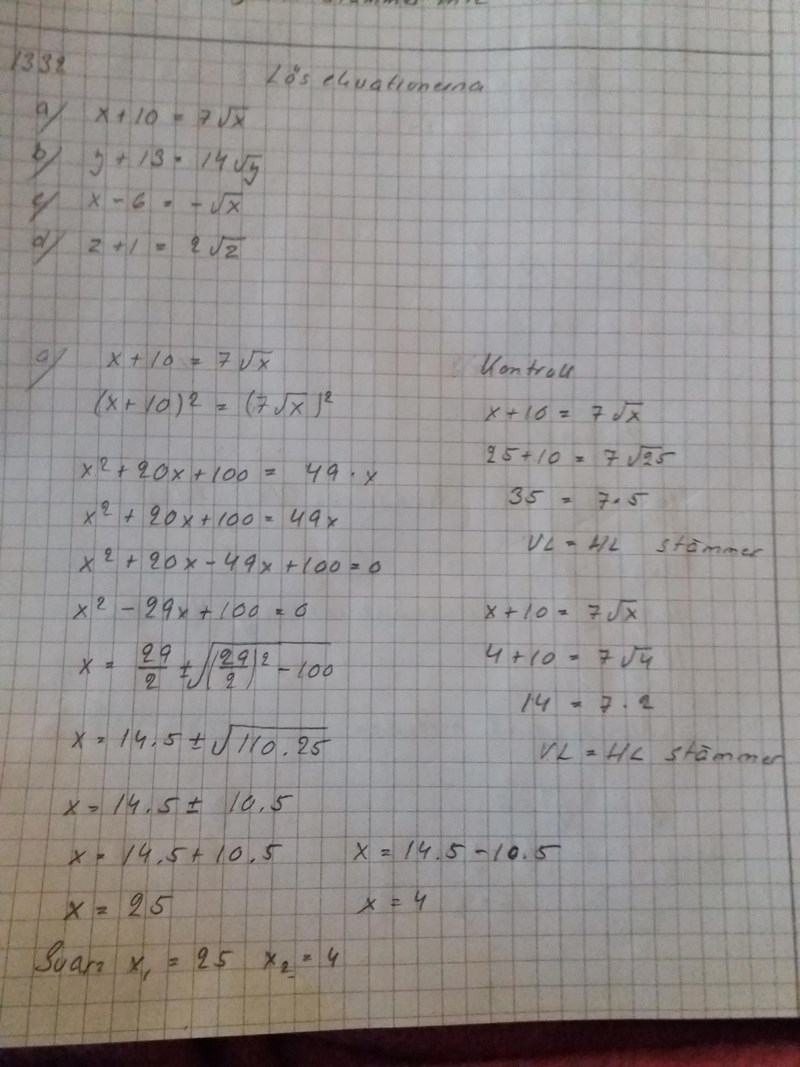 1332
Lös ekvationerna
a) x + 10 = 7√x
b) y + 13 = 14√y
c) x - 6 = -√x
d) z + 1 = 2√z
a) x + 10 = 7√x
(x + 10)² = (7√x)²
x² + 20x + 100 = 49 · x
x² + 20x + 100 = 49x
x² + 20x - 49x + 100 = 0
x² - 29x + 100 = 0
x = 29/2 ± √((29/2)² - 100)
x = 14.5 ± √110.25
x = 14.5 ± 10.5
x = 14.5 + 10.5 x = 14.5 - 10.5
x = 25 x = 4
Svar: x₁ = 25 x₂ = 4
Kontroll
x + 10 = 7√x
25 + 10 = 7√25
35 = 7·5
VL = HL stämmer
x + 10 = 7√x
4 + 10 = 7√4
14 = 7·2
VL = HL stämmer